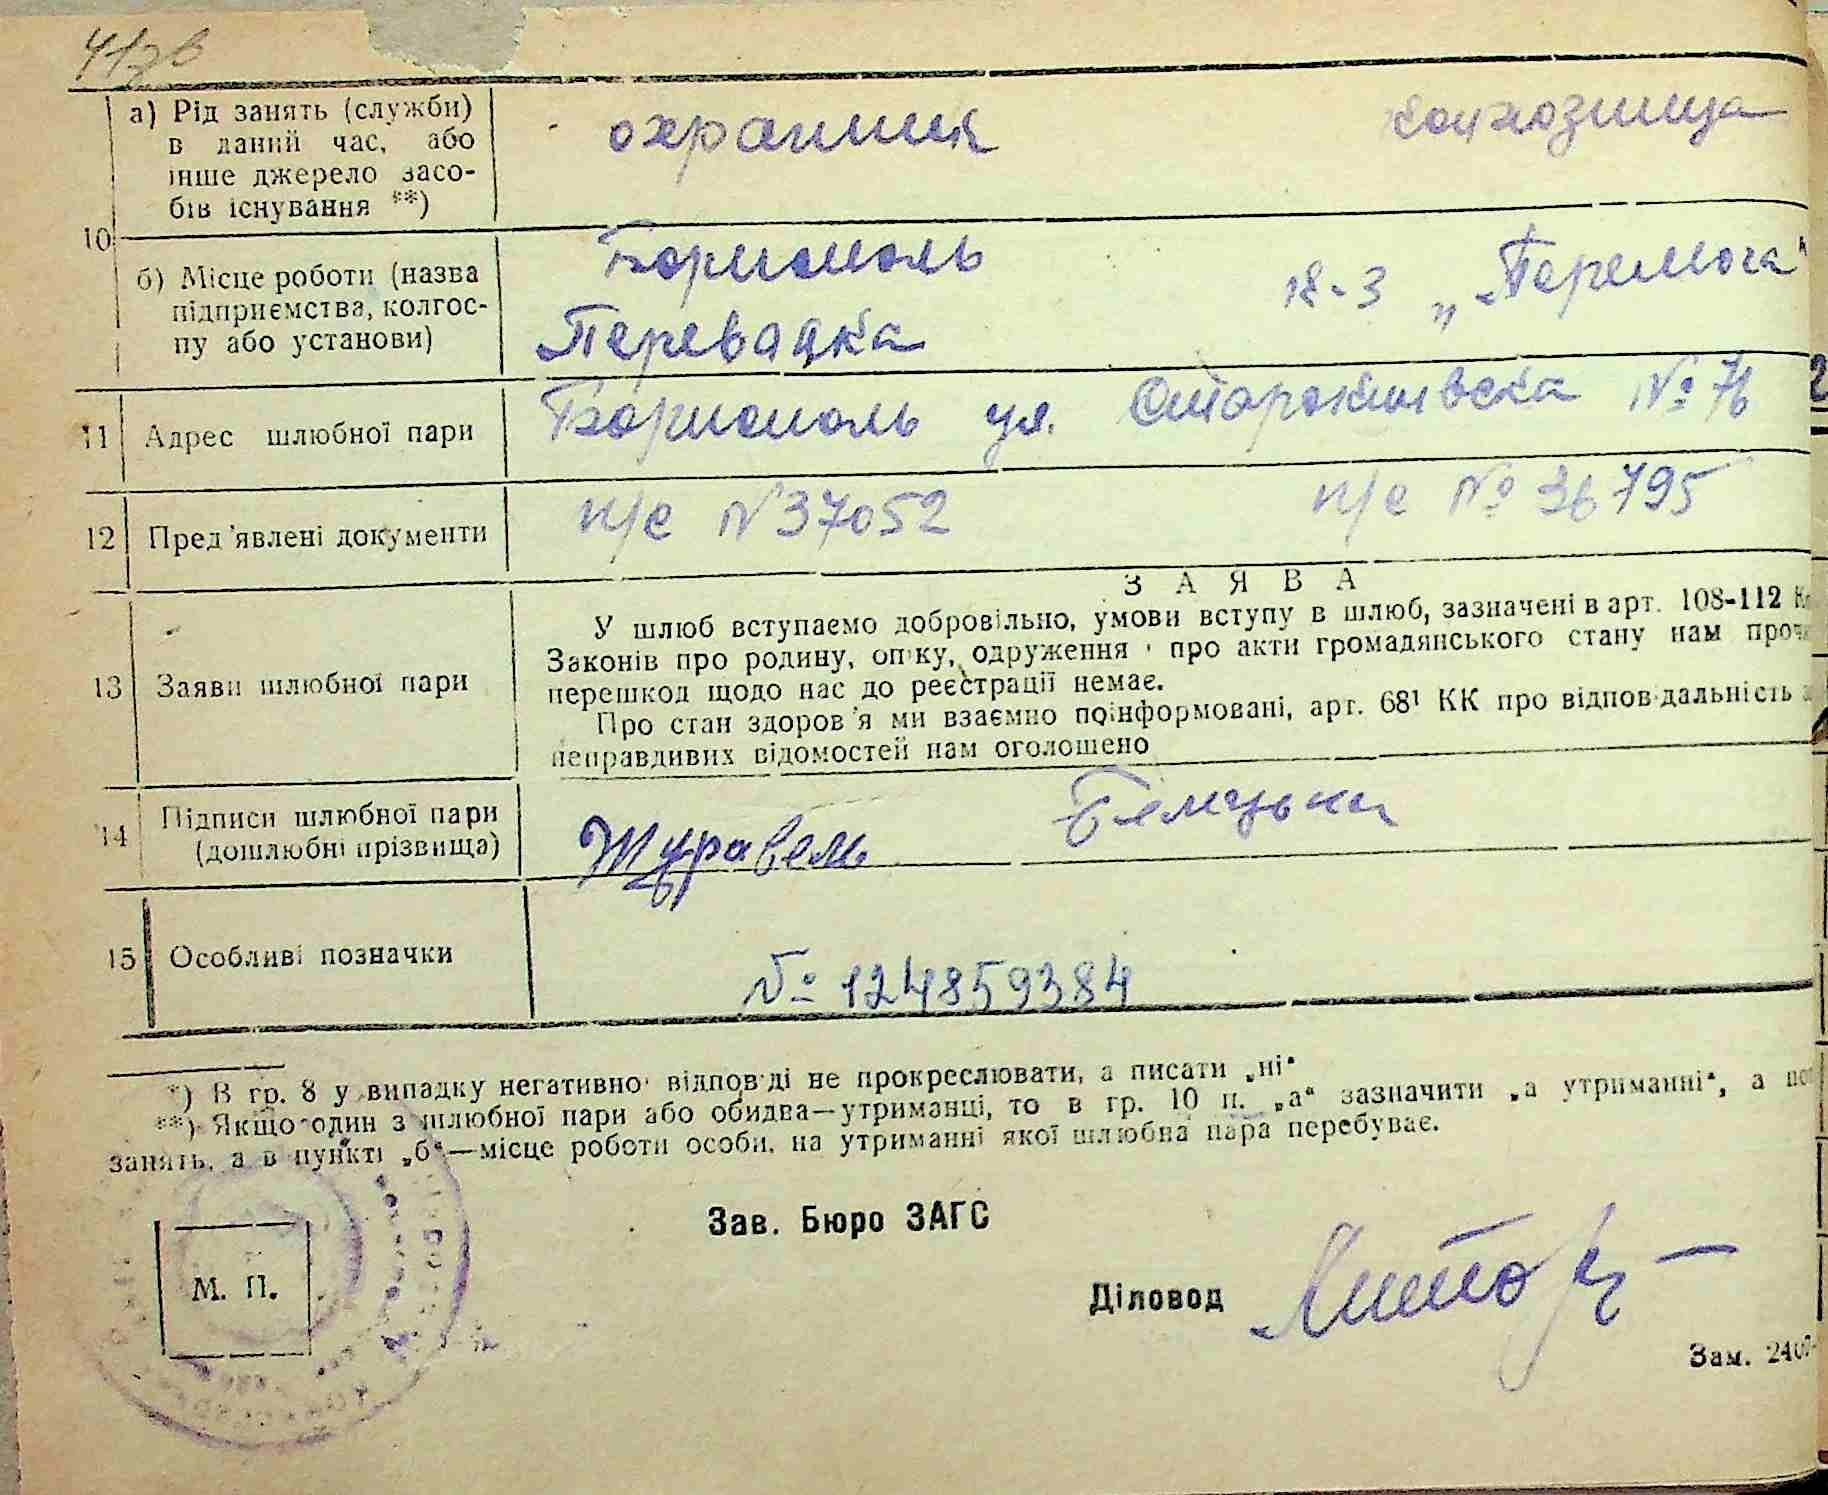 41зв
а) Рід занять (служби)
в даний час, або
інше джерело засо-
бів існування **)
охранник
колхозница
10
б) Місце роботи (назва
підприємства, колгос-
пу або установи)
Бориополь
к-з „Перемога"
11
Адрес шлюбної пари
Бориополь ул. Старокиивска № 76
12
Пред'явлені документи
п/с № 37052
п/с № 36795
ЗАЯВА
13
Заяви шлюбної пари
У шлюб вступаємо добровільно, умови вступу в шлюб, зазначені в арт. 108-112
Законів про родину, опіку, одруження і про акти громадянського стану нам
перешкод щодо нас до реєстрації немає.
Про стан здоров'я ми взаємно поінформовані, арт. 68¹ КК про відповідальність
неправдивих відомостей нам оголошено
14
Підписи шлюбної пари
(дошлюбні прізвища)
Журавель
15
Особливі позначки
№ 124859384
*) В гр. 8 у випадку негативної відповіді не прокреслювати, а писати „ні"
**) Якщо один з шлюбної пари або обидва—утриманці, то в гр. 10 п. „а" зазначити „а утриманні", а
занять, а в пункті „б"—місце роботи особи, на утриманні якої шлюбна пара перебуває.
Зав. Бюро ЗАГС
М. П.
Діловод
Зам. 240